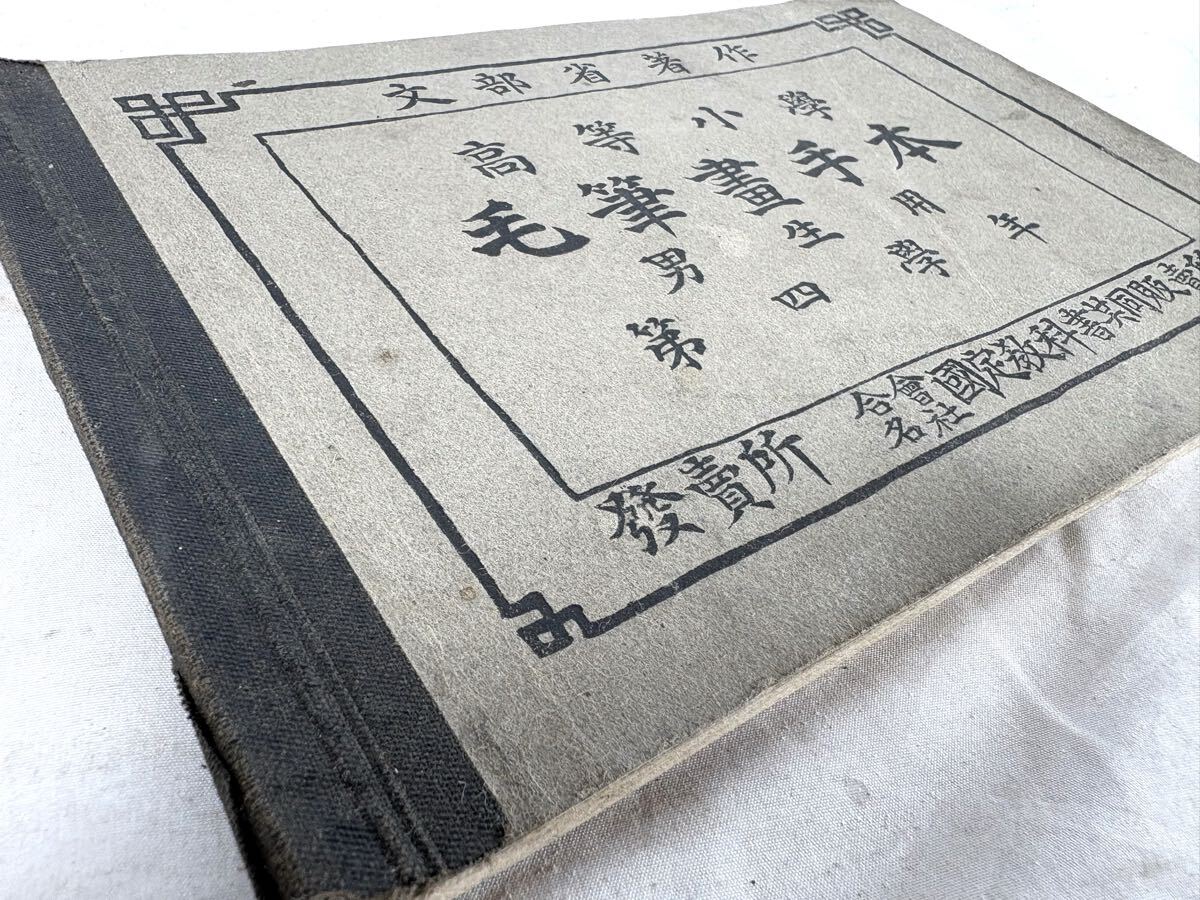 文部省著作
高等小學
毛筆畫手本
男生用
第四學年
發賣所 合名會社 國定教科書共同販賣所